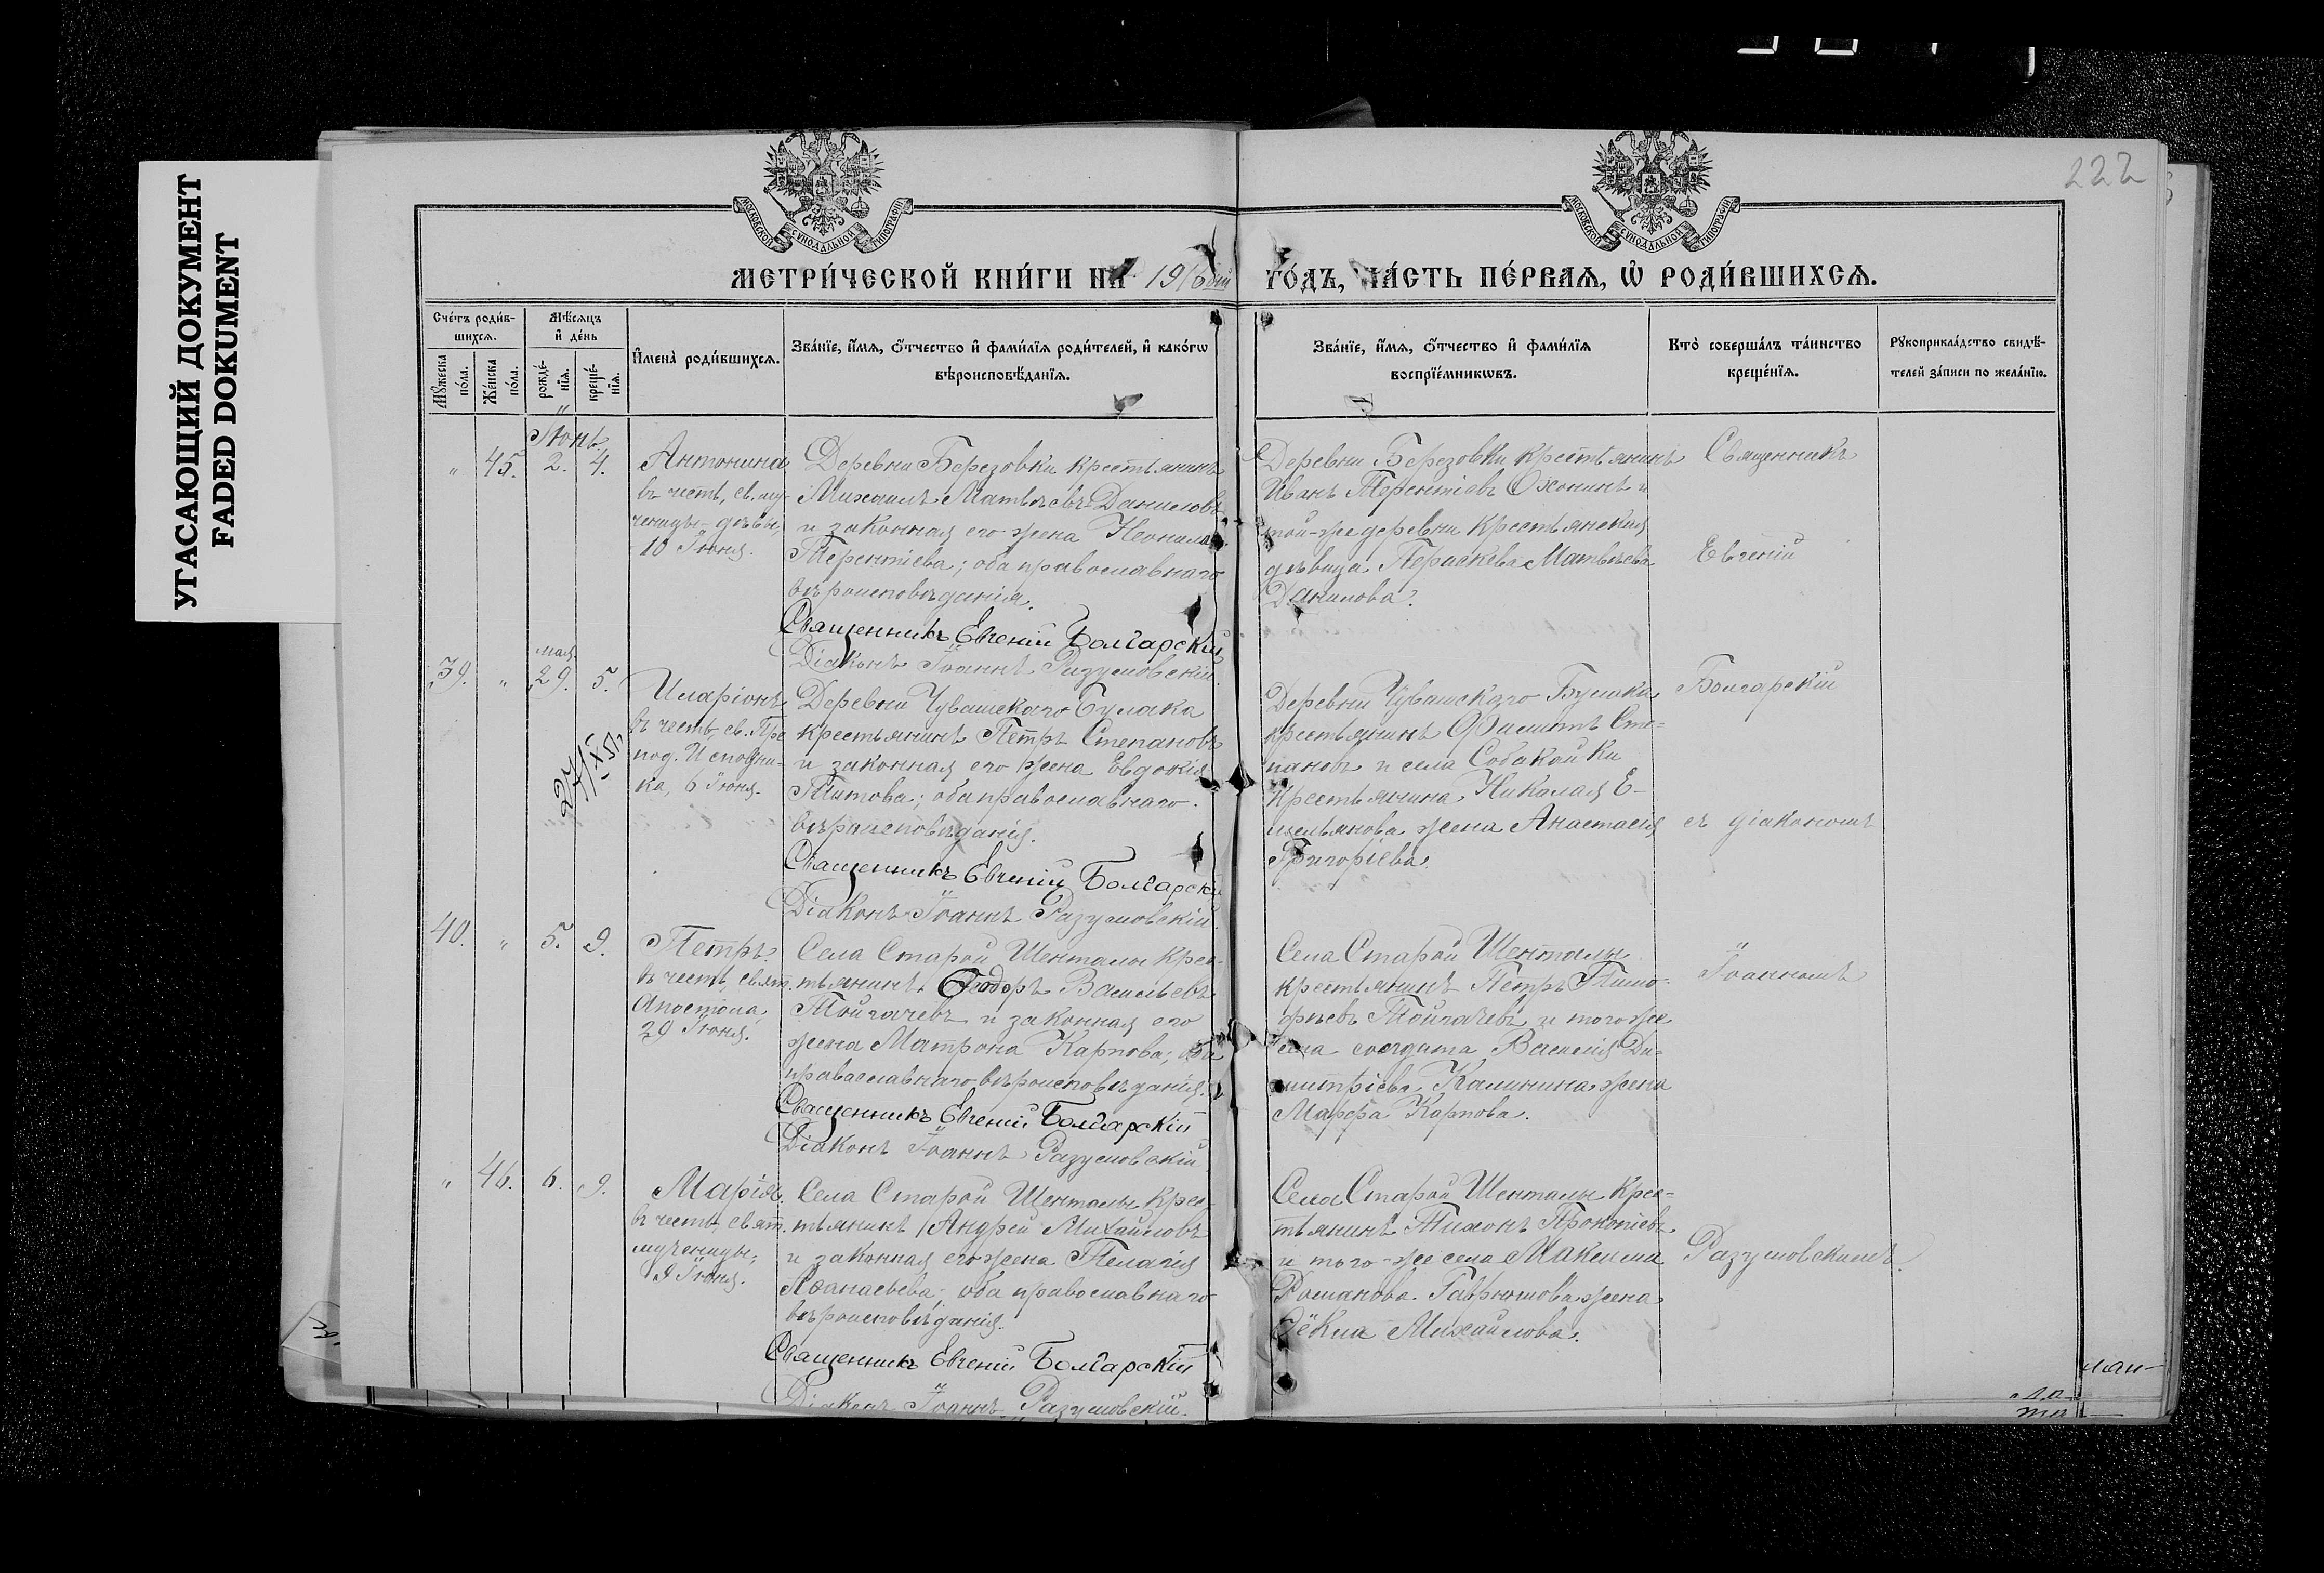 УГАСАЮЩИЙ ДОКУМЕНТ
FADED DOKUMENT
222
МОСКОВСКОЙ СѴНОДАЛЬНОЙ ТИПОГРАФІИ
МОСКОВСКОЙ СѴНОДАЛЬНОЙ ТИПОГРАФІИ
МЕТРИ́ЧЕСКОЙ КНИ́ГИ НА 1916ый ГО́ДЪ, ЧА́СТЬ ПЕ́РВАЯ, Ѿ РОДИ́ВШИХСЯ.
Сче́тъ роди́в-
шихся.
Мꙋжеска
по́ла.
Же́нска
по́ла.
Мѣ́сяцъ
и҆ де́нь
рожде́-
нїѧ.
креще́-
нїѧ.
И҆мена̀ роди́вшихся.
Зва́нїе, и҆́мя, ѻ҆́тчество и҆ фами́лїя роди́телей, и҆ како́гѡ
вѣроисповѣ́данїя.
Зва́нїе, и҆́мя, ѻ҆́тчество и҆ фами́лїя
воспрїе́мникѡвъ.
Кто̀ соверша́лъ та́инство
креще́нїя.
Рꙋкоприкла́дство свидѣ́-
телей за́писи по жела́нїю.
Іюнь
" 45. 2. 4.
Антонина
въ честь, св. му-
ченицы-дѣвы,
10 Іюня.
Деревни Березовки крестьянинъ
Михаилъ Матвѣевъ Даниловъ
и законная его жена Неонила
Терентіева; оба православнаго
вѣроисповѣданія.
Священникъ Евгеній Болгарскій
Діаконъ Іоаннъ Разумовскій.
Деревни Березовки, крестьянинъ
Иванъ Терентіевъ Ѳхонинъ и
той-же деревни крестьянская
дѣвица Параскева Матвѣева
Данилова.
Священникъ
Евгеній
Болгарскій
съ діакономъ
Іоанномъ
Разумовскимъ.
мая
39. " 29. 5.
27/XI 51
Иларіонъ
въ честь, св. Пре
под. Исповѣдни-
ка, 6 Іюня.
Деревни Чувашскаго Булака
крестьянинъ Петръ Степановъ
и законная его жена Евдокія
Титова; оба православнаго
вѣроисповѣданія.
Священникъ Евгеній Болгарскій
Діаконъ Іоаннъ Разумовскій.
Деревни Чувашскаго Булака
крестьянинъ Филиппъ Сте-
пановъ и села Собакайки
крестьянина Николая Е-
мельянова жена Анастасія
Григоріева.
40. " 5. 9.
Петръ
въ честь, свят.
Апостола,
29 Іюня.
Села Старой Шенталы крес-
тьянинъ Ѳеодоръ Васильевъ
Тойгачевъ и законная его
жена Матрона Карпова; оба
православнаго вѣроисповѣданія.
Священникъ Евгеній Болгарскій
Діаконъ Іоаннъ Разумовскій
Села Старой Шенталы
крестьянинъ Петръ Тимо-
ѳеевъ Тойгачевъ и того же
села солдата Василія Ди-
митріева Калинина жена
Марфа Карпова.
" 46. 6. 9.
Марія
въ честь свят.
мученицы,
9 Іюня.
Села Старой Шенталы крес-
тьянинъ Андрей Михайловъ
и законная его жена Пелагія
Аѳанасьева; оба православнаго
вѣроисповѣданія.
Священникъ Евгеній Болгарскій
Діаконъ Іоаннъ Разумовскій.
Села Старой Шенталы крес-
тьянинъ Тихонъ Прокопіевъ
и того-же села Максима
Романова Гаврюшова жена
Ѳёкла Михайлова.